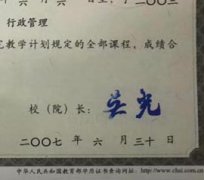 年 六 月
行政管理
完教学计划规定的全部课程，成绩合
校（院）长：
二〇〇七 年 六 月 三十 日
中华人民共和国教育部学历证书查询网址：http://www.chsi.com.cn